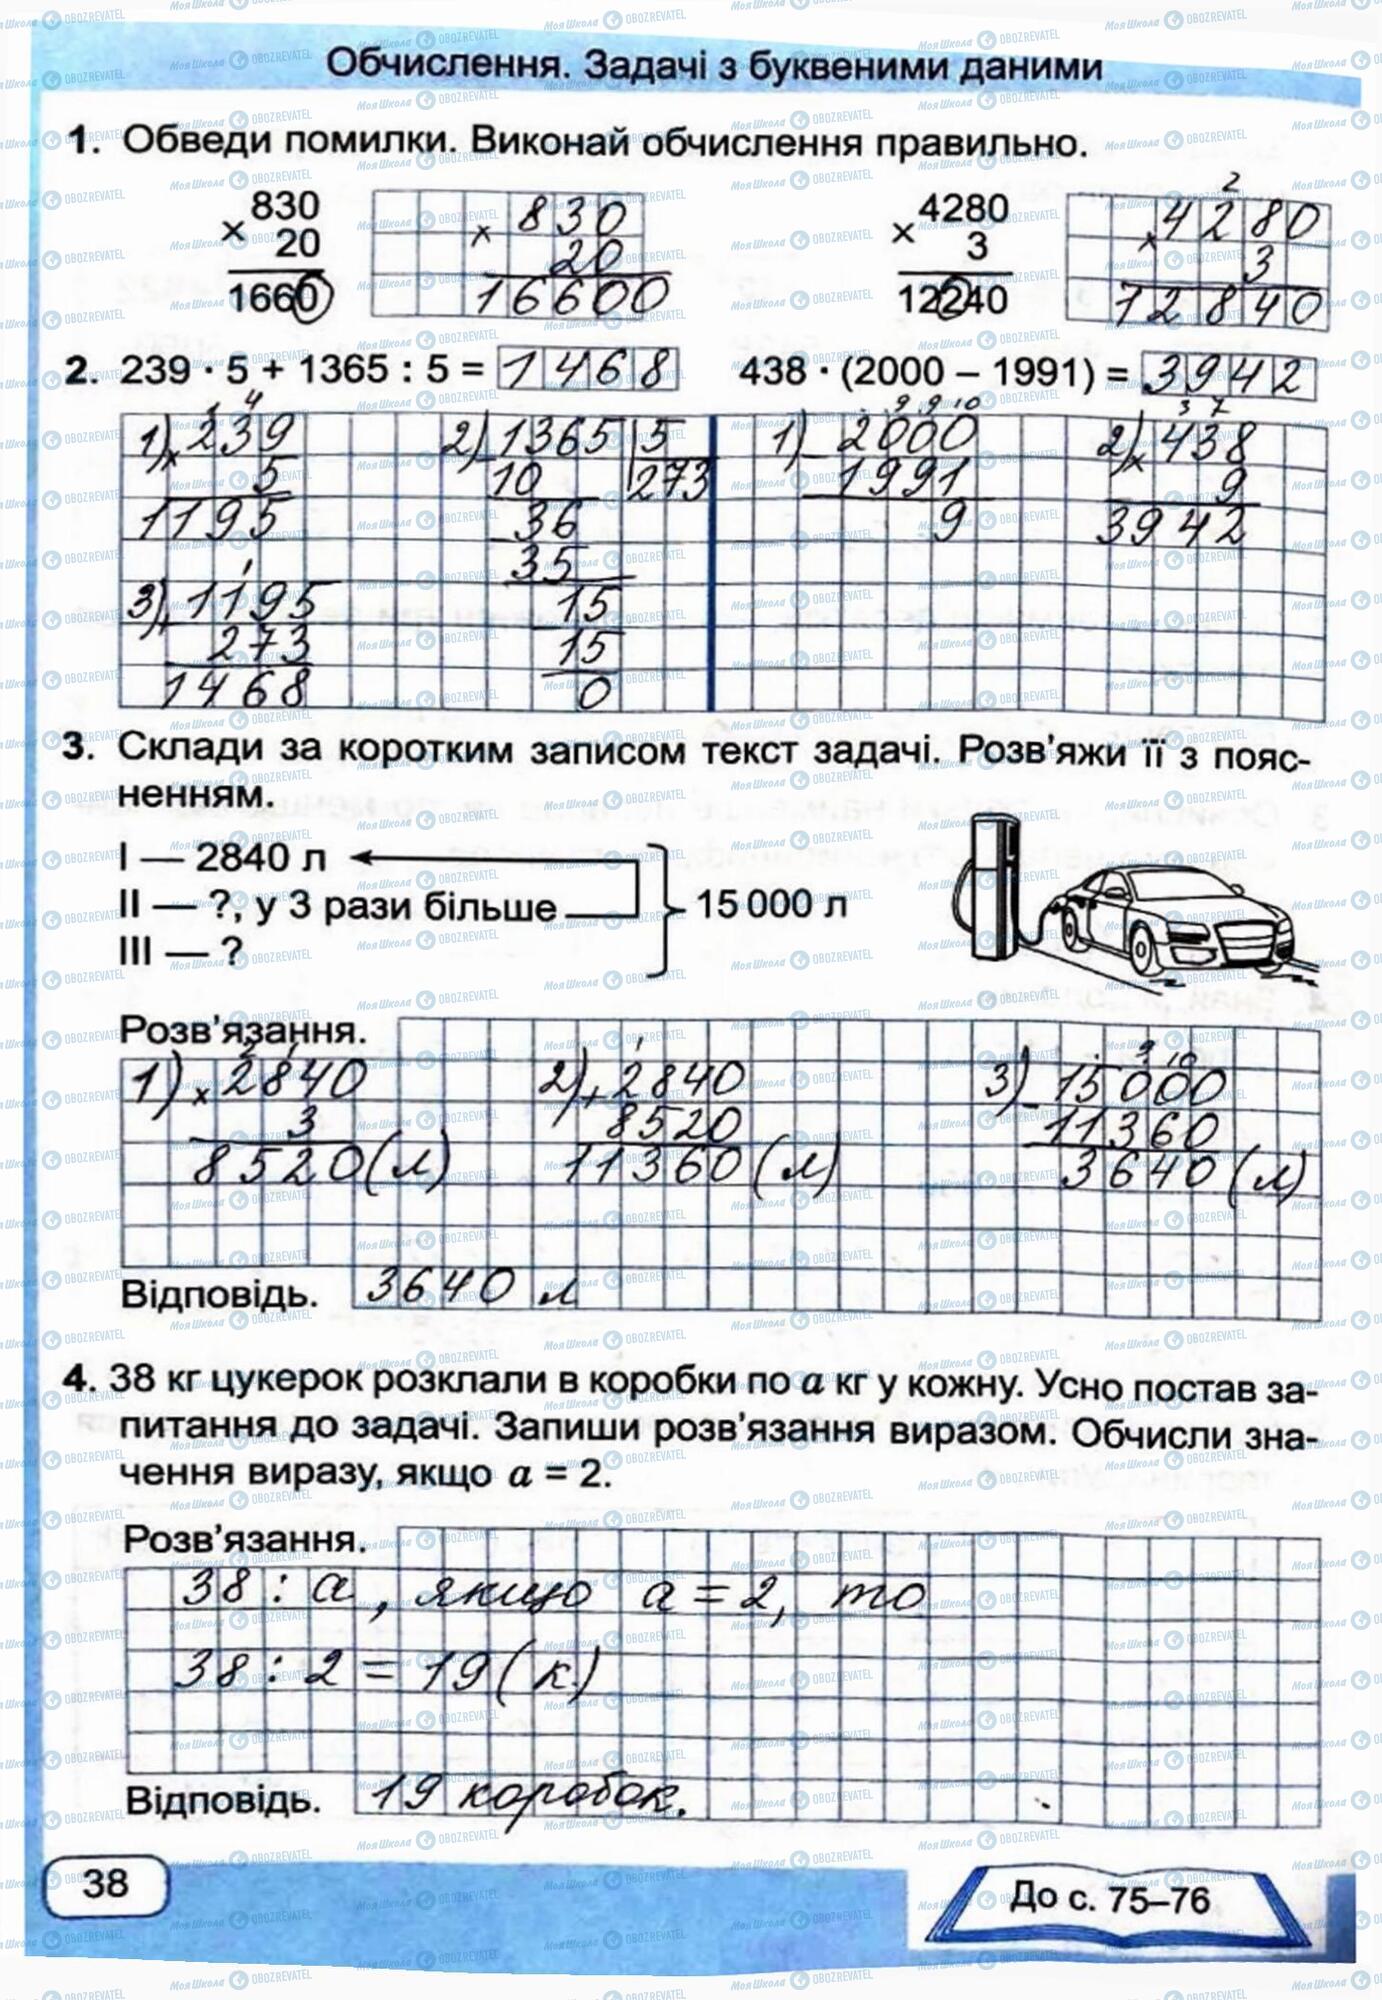 Обчислення. Задачі з буквеними даними
1. Обведи помилки. Виконай обчислення правильно.
× 830
20
1660
× 830
20
16600
× 4280
3
12240
2
× 4280
3
12840
2. 239 · 5 + 1365 : 5 = 1468
438 · (2000 – 1991) = 3942
1 4
1) × 239
5
1195
2) 1365 | 5
10 | 273
36
35
15
15
0
1
3) + 1195
273
1468
9 9 10
1) – 2000
1991
9
3 7
2) × 438
9
3942
3. Склади за коротким записом текст задачі. Розв'яжи її з пояс-
ненням.
I — 2840 л
II — ?, у 3 рази більше
III — ?
15 000 л
Розв'язання.
2 1
1) × 2840
3
8520 (л)
1
2) + 2840
8520
11360 (л)
9 10
3) – 15000
11360
3640 (л)
Відповідь. 3640 л
4. 38 кг цукерок розклали в коробки по a кг у кожну. Усно постав за-
питання до задачі. Запиши розв'язання виразом. Обчисли зна-
чення виразу, якщо a = 2.
Розв'язання.
38 : a, якщо a = 2, то
38 : 2 = 19 (к)
Відповідь. 19 коробок.
38
До с. 75–76
МояШкола OBOZREVATEL